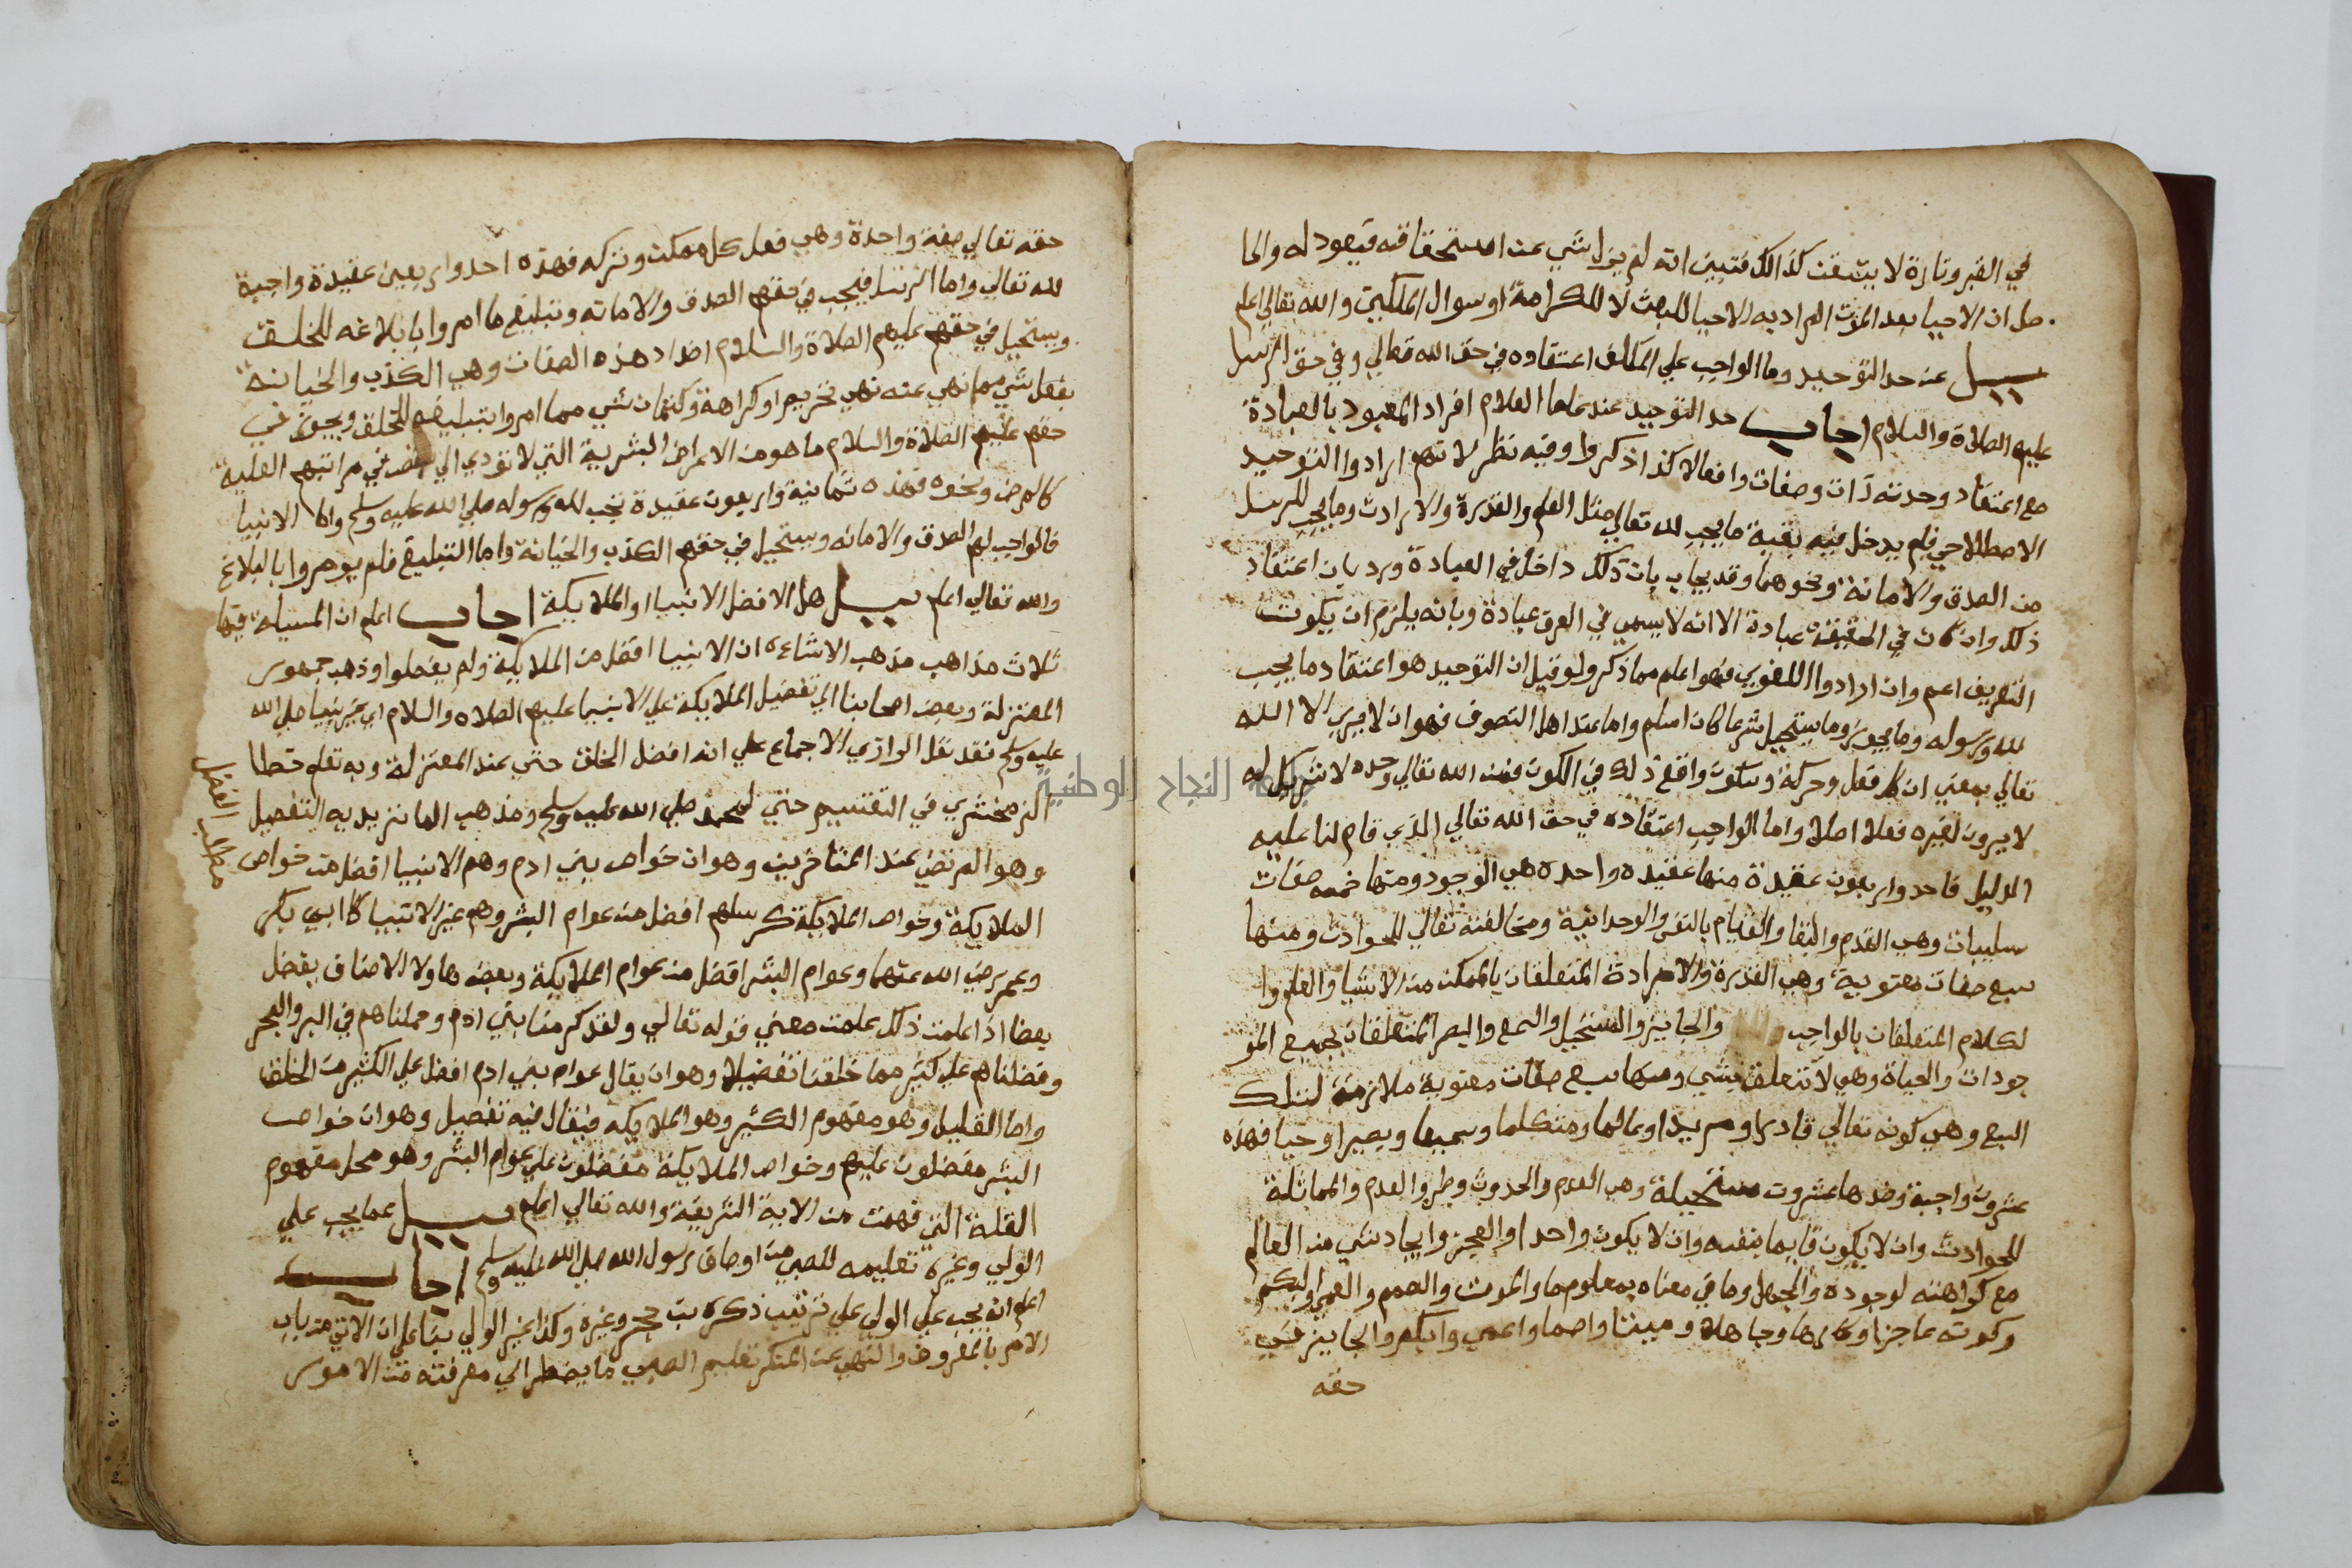 في القبر وتارة لا يتفق كذالك فتبين انه لم يزل شي عن استحقاقه فيعود له والحا
صل ان الاحيا بعد الموت المراد به الاحيا للبعث لا للكرامة او سوال الملكين والله تعالي اعلم
سيل عن حد التوحيد وما الواجب علي المكلف اعتقاده في حق الله تعالي وفي حق الرسل
عليهم الصلاة والسلام اجاب حد التوحيد عند علما الكلام افراد المعبود بالعبادة
مع اعتقاد وحدته ذات وصفات وافعالا كذا ذكروا وفيه نظر لانهم ارادوا التوحيد
الاصطلاحي فلم يدخل فيه بقية ما يجب لله تعالي مثل العلم والقدرة والارادت وما يجب للرسل
من الصدق والامانة ونحوهما وقد يجاب بان ذلك داخل في العبادة ورد بان اعتقاد
ذلك وان كان في الحقيقة عبادة الا انه لا يسمي في العرف عبادة وبانه يلزم ان يكون
التعريف اعم وان ارادوا اللغوي فهو اعلم مما ذكر ولو قيل ان التوحيد هو اعتقاد ما يجب
لله ورسوله وما يجوز وما يستحيل شرعا كان اسلم واما عند اهل التصوف فهو ان لا يري الا الله
تعالي بمعني ان كل فعل وحركة وسكون واقع في الكون فمن الله تعالي وحده لا شريك له
لا يرون لغيره فعلا اصلا واما الواجب اعتقاده في حق الله تعالي الذي قام لنا عليه
الدليل فاحد واربعون عقيدة منها عقيده واحده هي الوجود ومنها خمسه صفات
سلبيات وهي القدم والبقا والقيام بالنفس والوحدانية ومخالفته تعالي للحوادث ومنها
سبع صفات معنوية وهي القدرة والارادة المتعلقان بالممكن من الاشيا والعلم وا
لكلام المتعلقان بالواجب والجايز والمستحيل والسمع والبصر المتعلقان بجميع المو
جودات والحياة وهي لا تتعلق بشي ومنها سبع صفات معنوية ملازمة لتلك
السبع وهي كونه تعالي قادرا ومريدا وعالما ومتكلما وسميعا وبصيرا وحيا فهذه
عشرون واجبة وضدها عشرون مستحيلة وهي العدم والحدوث وطرو العدم والمماثلة
للحوادث وان لا يكون قايما بنفسه وان لا يكون واحدا والعجز وايجاد شي من العالم
مع كراهته لوجوده والجهل وما في معناه بمعلوم ما والموت والصمم والعمي والبكم
وكونه عاجزا وكارها وجاهلا وميتا واصما واعمي وابكم والجايز في
حقه
حقه تعالي صفة واحدة وهي فعل كل ممكن وتركه فهذه احد واربعين عقيدة واجبة
لله تعالي واما الرسل فيجب في حقهم الصدق والامانه وتبليغ ما امروا بابلاغه للخلق
ويستحيل في حقهم عليهم الصلاة والسلام اضداد هذه الصفات وهي الكذب والخيانة
بفعل شي مما نهي عنه نهي تحريم او كراهة وكتمان شي مما امروا بتبليغه للخلق ويجوز في
حقهم عليهم الصلاة والسلام ما هو من الاعراض البشرية التي لا تودي الي نقص في مراتبهم العلية
كالمرض ونحوه فهذه ثمانية واربعون عقيدة تجب لله ورسوله صلي الله عليه وسلم واما الانبيا
فالواجب لهم الصدق والامانه ويستحيل في حقهم الكذب والخيانة واما التبليغ فلم يومروا بالبلاغ
والله تعالي اعلم سيل هل الافضل الانبيا او الملايكة اجاب اعلم ان المسيلة فيها
ثلاث مذاهب مذهب الاشاعره ان الانبيا افضل من الملايكة ولم يفصلوا وذهب جمهور
المعتزلة وبعض اصحابنا الي تفضيل الملايكة علي الانبيا عليهم الصلاه والسلام اي غير نبينا صلي الله
عليه وسلم فقد نقل الرازي الاجماع علي انه افضل الخلق حتي عند المعتزلة وبه تعلم خطا
الزمخشري في التقسيم حتي لمحمد صلي الله عليه وسلم ومذهب الماتزيديه التفصيل
وهو المرتضي عند المتاخرين وهو ان خواص بني ادم وهم الانبيا افضل من خواص
الملايكة وخواص الملايكة كرسلهم افضل من عوام البشر وهم غير الانبيا كابي بكر
وعمر رضي الله عنهما وعوام البشر افضل من عوام الملايكة وبعض هاولا الاصناف يفضل
بعضا اذا علمت ذلك علمت معني قوله تعالي ولقد كرمنا بني ادم وحملناهم في البر والبحر
وفضلناهم علي كثير مما خلقنا تفضيلا وهو ان يقال عوام بني ادم افضل علي الكثير من الخلق
واما القليل وهو مفهوم الكثير وهو الملايكه فيقال فيه تفصيل وهو ان خواص
البشر مفضلون عليهم وخواص الملايكة مفضلون علي عوام البشر وهو محل مفهوم
القلة التي فهمت من الاية الشريفة والله تعالي اعلم سيل عما يجب علي
الولي وغيره تعليمه للصبي من اوصاف رسول الله صلي الله عليه وسلم اجاب
اعلم انه يجب علي الولي علي ترتيب ذكره بن حجر وغيره وكذا غير الولي بنا علي ان الاتي من باب
الامر بالمعروف والنهي عن المنكر تعليم الصبي ما يضطر الي معرفته من الامور
مطلب الفضل
النجاح الوطنية